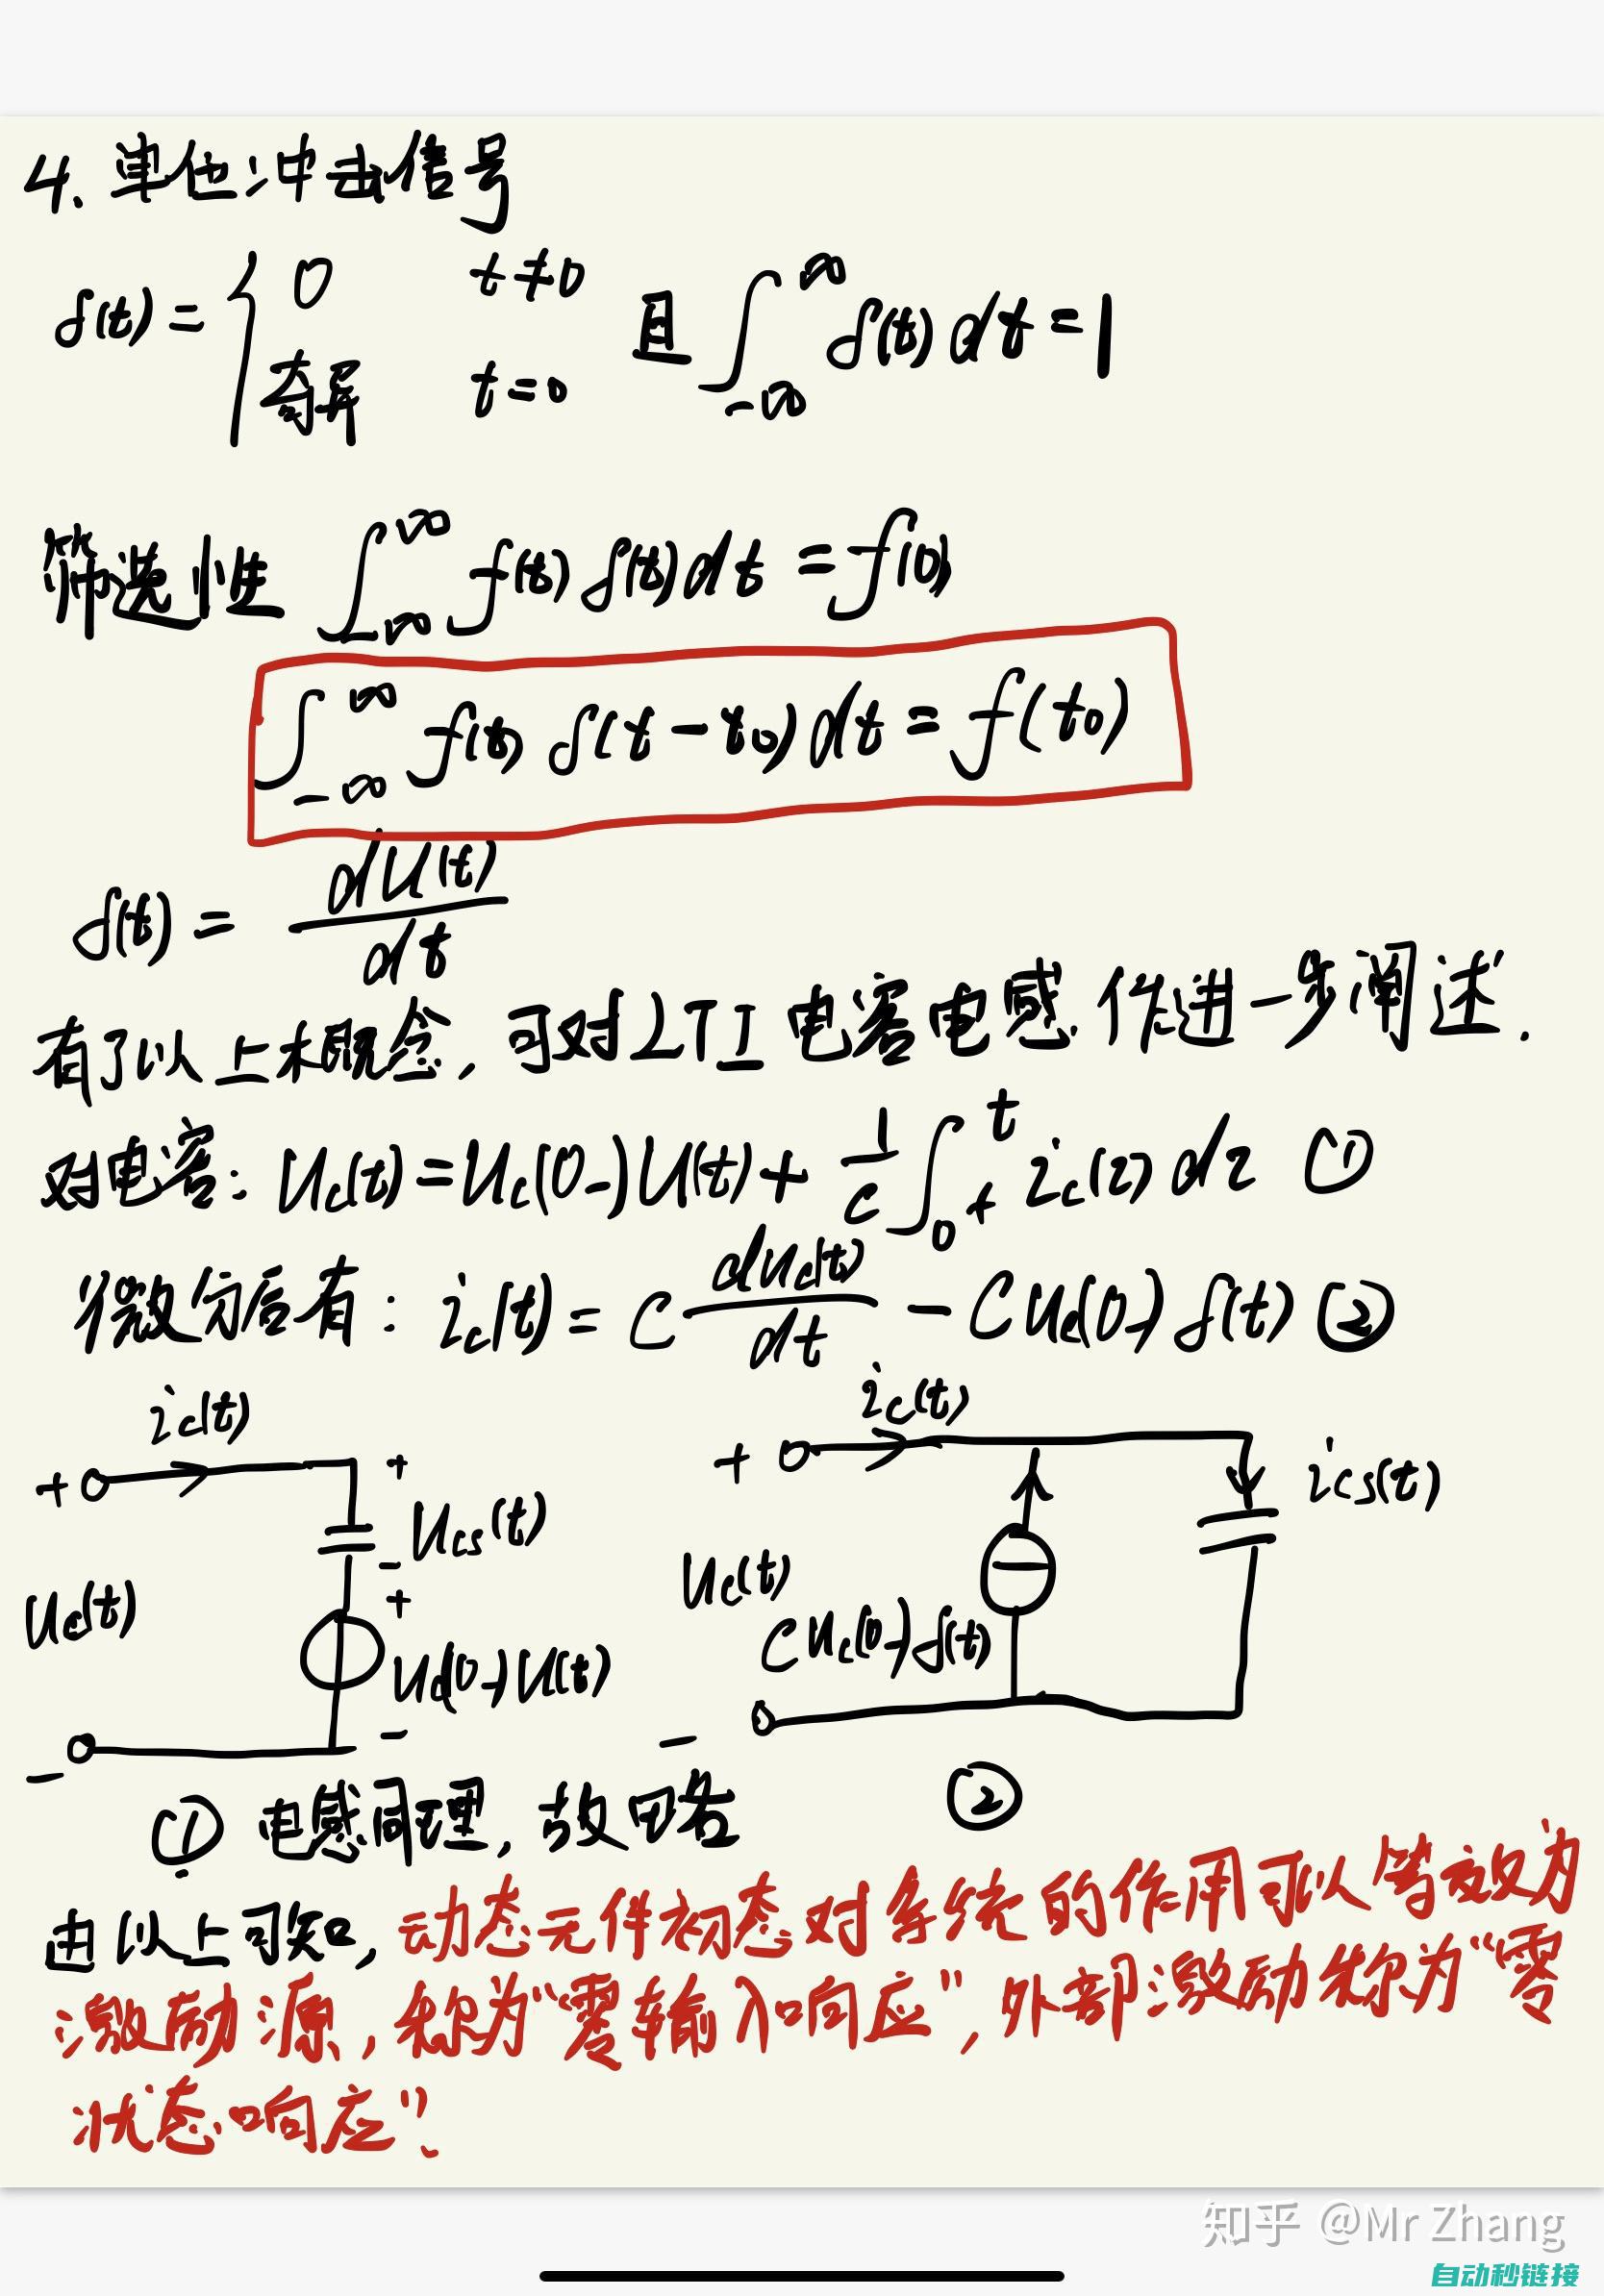 4. 单位冲击信号
δ(t) = { 0 t≠0
奇异 t=0 且 ∫_{-∞}^{∞} δ(t) dt = 1
筛选性 ∫_{-∞}^{∞} f(t) δ(t) dt = f(0)
∫_{-∞}^{∞} f(t) δ(t-t₀) dt = f(t₀)
δ(t) = dU(t)/dt
有了以上概念, 可对LTI电容电感作进一步阐述.
对电容: Uc(t) = Uc(0-)U(t) + 1/C ∫_{0+}^{t} ic(τ) dτ ①
微分后有: ic(t) = C dUc(t)/dt - CUc(0-) δ(t) ②
ic(t)
+ +
Ucs(t)
-
+
Uc(t)
Uc(0-)U(t)
- -
①
ic(t)
+ ics(t)
Uc(t)
CUc(0-)δ(t)
-
②
电感同理, 故略
由以上可知, 动态元件初态对系统的作用可以等效为
激励源, 称为“零输入响应”, 外部激励称为“零
状态响应”.
知乎 @Mr Zhang
自动秒链接